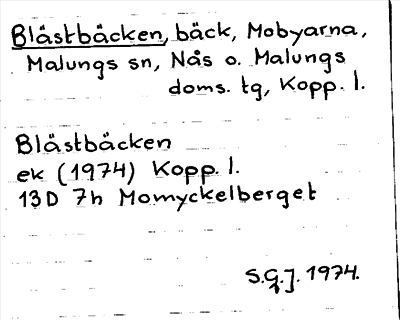 Blästbäcken, bäck, Mobyarna,
Malungs sn, Nås o. Malungs
doms. tg, Kopp. l.
Blästbäcken
ek (1974) Kopp. l.
13D 7h Momyckelberget
S.G.J. 1974.